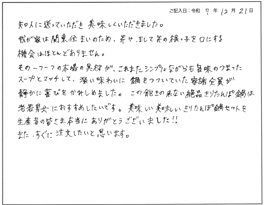 ご記入日:令和 7 年 12 月 21 日
知人に送っていただき 美味しくいただきました。
我が家は関東住まいのため、芹や、まして芹の根っ子を口にする
機会はほとんどありません。
その一つ一つの本場の具材が、これまたシンプルながらも旨味のつまった
スープとマッチして、深い味わいに 鍋をつついていた家族全員が
静かに喜びをかみしめました。この飽きの来ない絶品きりたんぽ鍋は
老若男女におすすめしたいです。美味しい美味しいきりたんぽ鍋セットを
生産者の皆さま本当にありがとうございました!!
また、すぐに注文したいと思います。